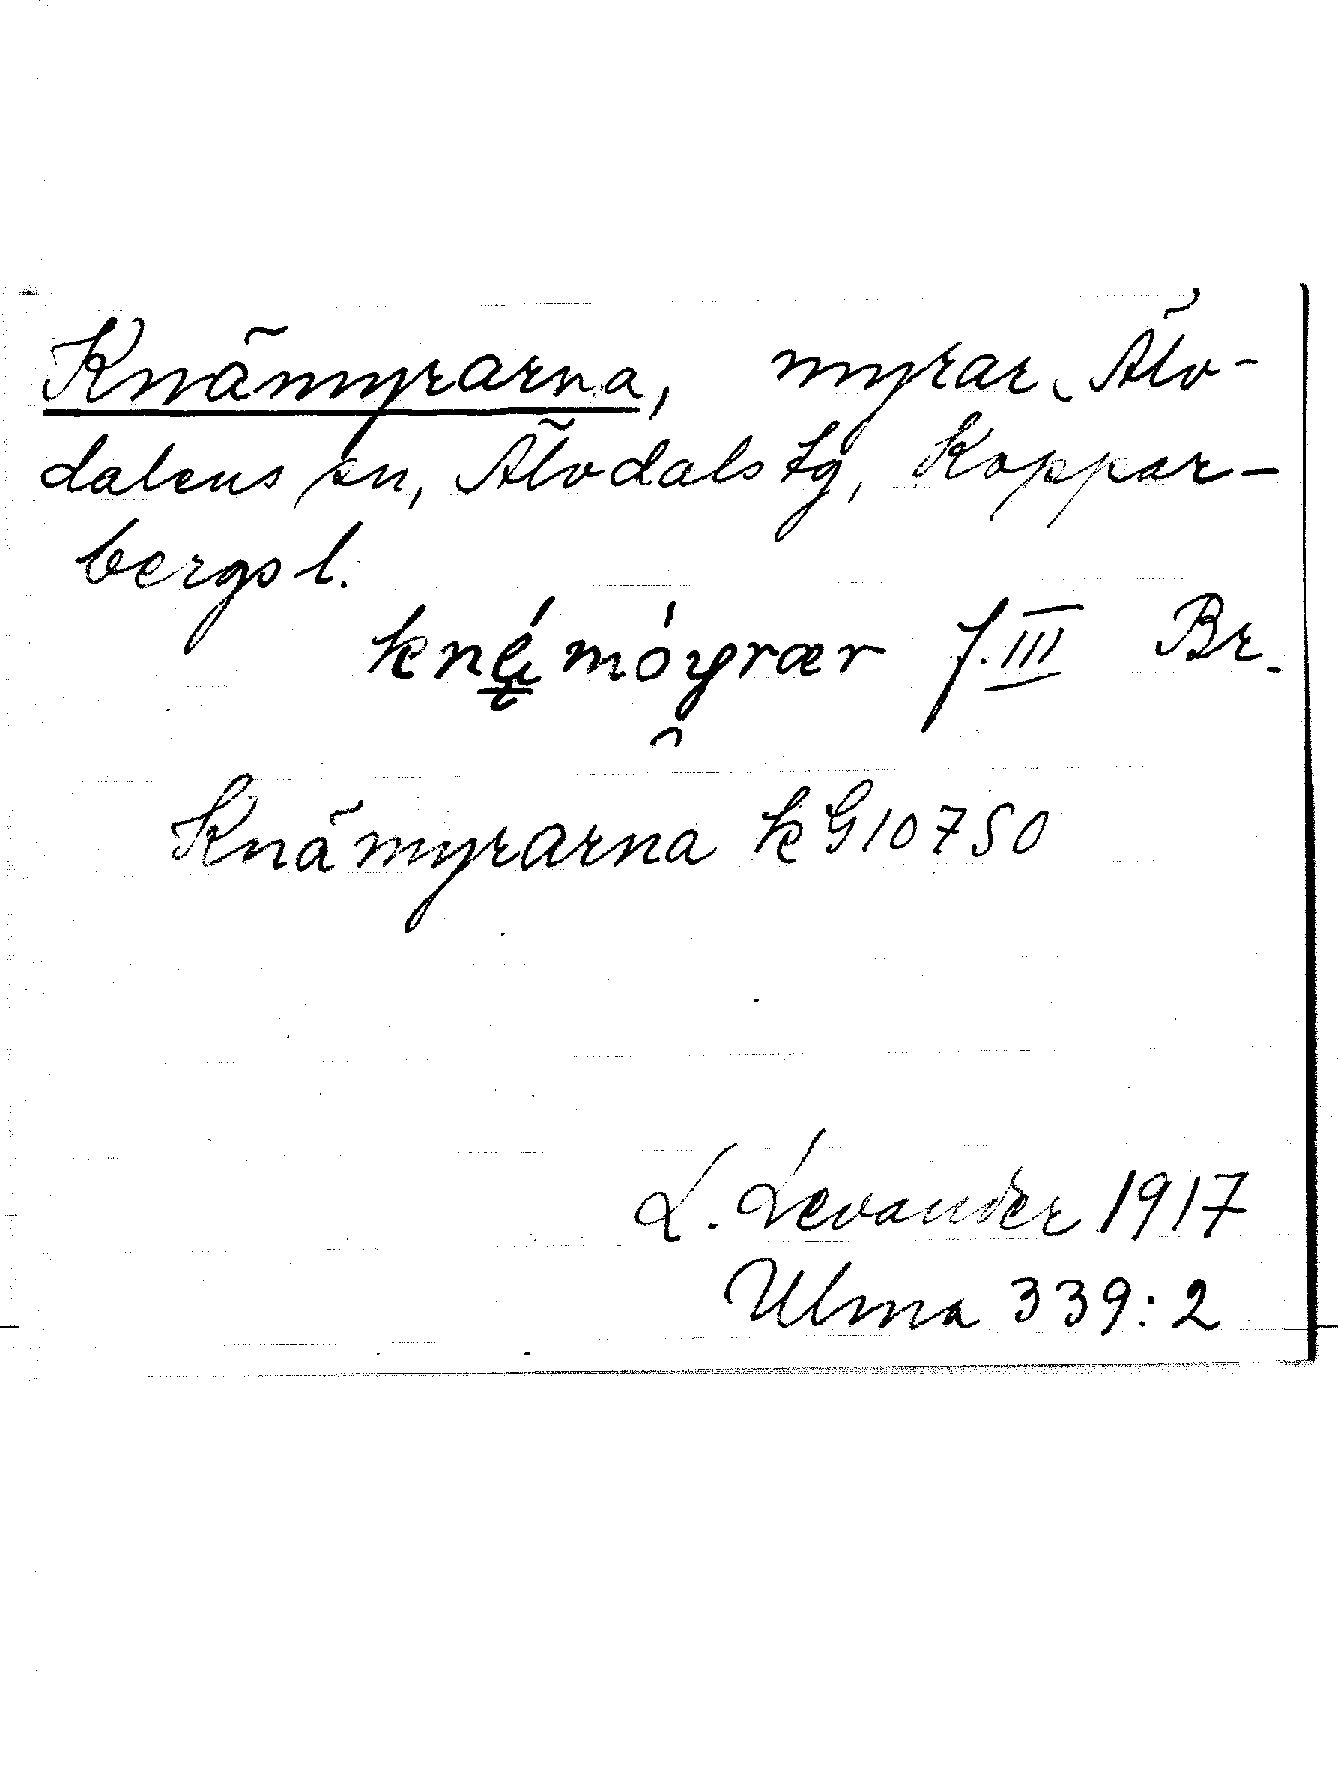 Knämyrarna, myrar, Älv-
dalens sn, Älvdals tg, Koppar-
bergs l.
mó̂yrær f. III Br.
Knämyrarna kG10750
L. Levander 1917
Ulma 339:2